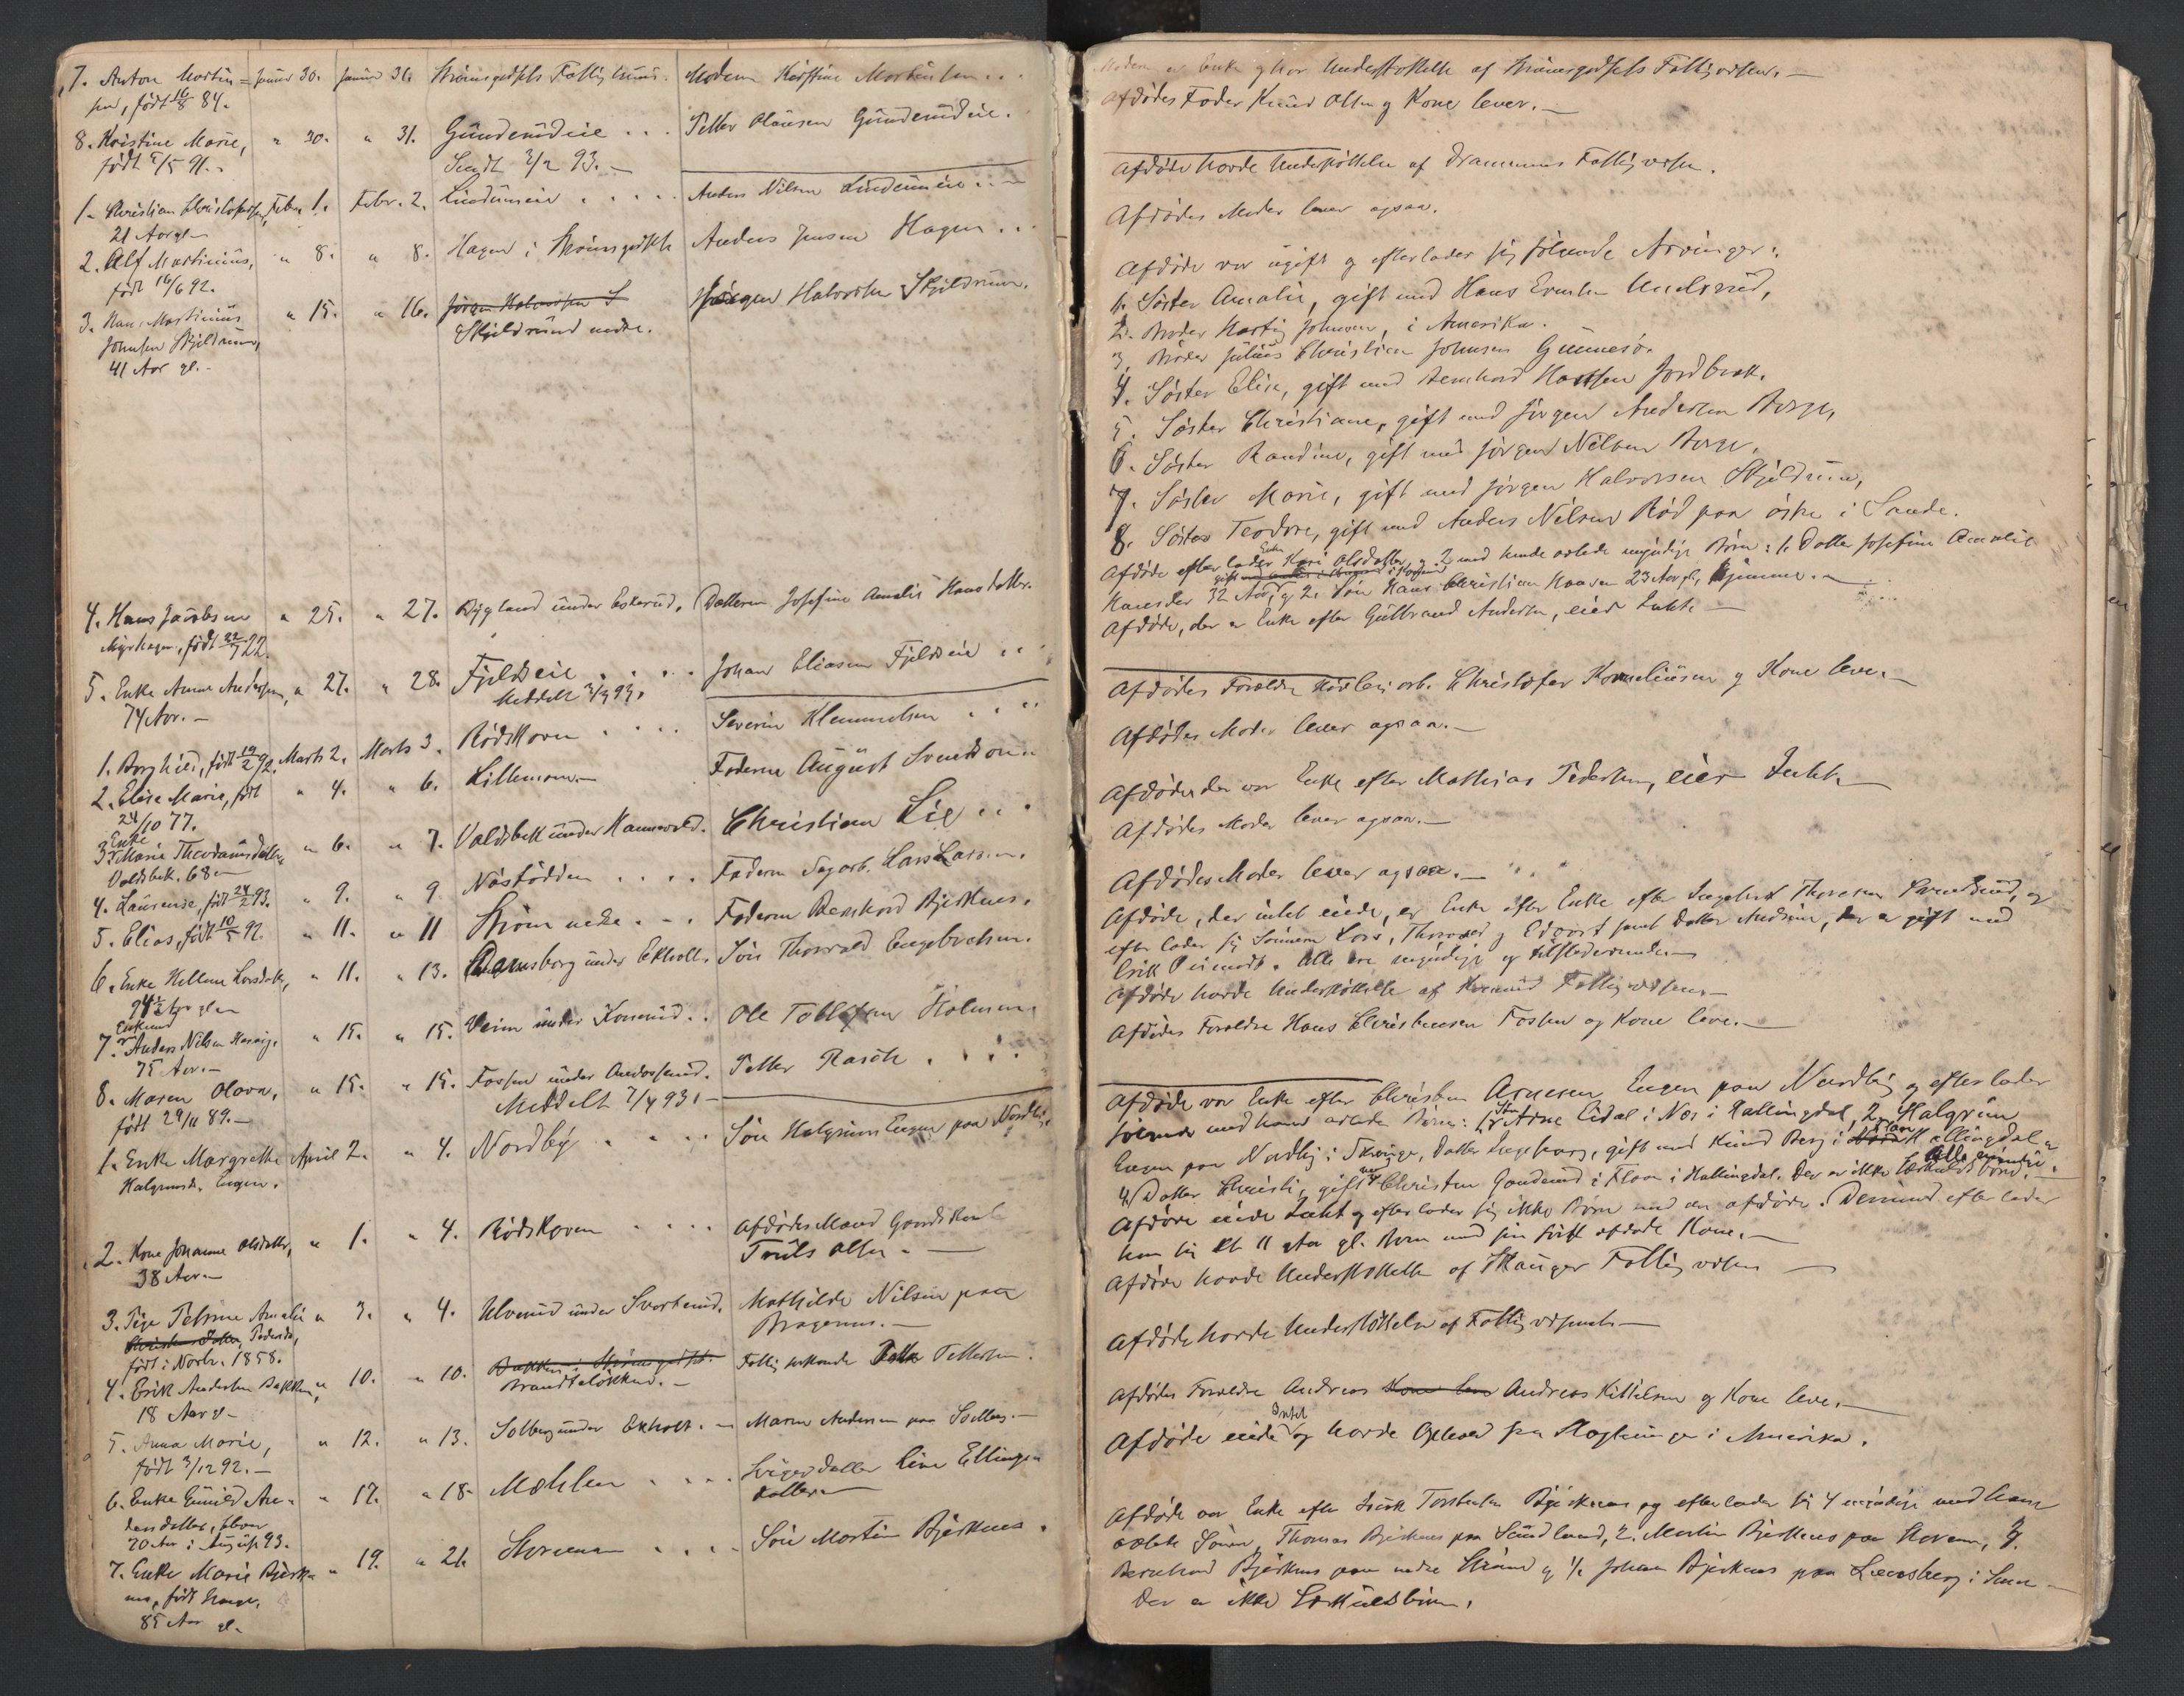 7. Anton Martin= Januar 30. Januar 31. Strømsgodsets Fattighuus. Modern Kirstine Mortensen
sen, født 16/8 84.
8. Kristine Marie, " 30. " 31. Gunderudeie Petter Olausen Gunderudeie.
født 5/5 91. Sendt 3/2 93.
1. Christian Christofersen, Febr. 1. Febr. 2. Lindumeie Anders Nilsen Lindumeie
21 Aar gl.
2. Alf Martinius, " 8. " 8. Hagen i Strømsgodset Anders Jensen Hagen
født 16/6 92.
3. Hans Martinius " 15. " 16. Jørgen Halvorsen S Jørgen Halvorsen Skjeldrum.
Johnsen Skjeldrum, Skjeldrum nedre.
41 Aar gl.
4. Hans Jacobsen " 25. " 27. Bygland under Eskerud. Datteren Josefine Amalie Hansdatter.
Myrhagen, født 22/7 22.
5. Enke Anne Andersen, " 27. " 28. Fjeldseie Johan Eliasen Fjeldseie
74 Aar. Meddelt 3/3 93.
1. Borghild, født 19/2 92. Marts 2. Marts 3. Rødskoven Severin Klemmetsen
2. Elise Marie, født " 4. " 6. Lillemoen Faderen August Svendsen
24/10 77.
3. Enke Marie Thordansdatter " 6. " 7. Valdsbek under Hannevold. Christian Lie
Valdsbek. 68
4. Laurense, født 24/2 93. " 9. " 9 Nøstodden Faderen Sagarb. Lars Larsen.
5. Elias, født 10/5 92. " 11. " 11 Strøm nedre Faderen Bernhard Bjerknes.
6. Enke Hellene Larsdatter, " 11. " 13. Ramsborg under Ekholt. Søn Thorvald Engebretsen.
94½ Aar gl.
Enkemand
7. Anders Nilsen " 15. " 15. Veim under Konnerud. Ole Tollefsen Holmen
75 Aar.
8. Maren Olava, " 15. " 15. Fossen under Andorsrud. Petter Rasch
født 29/11 89. Meddelt 7/4 93.
1. Enke Margrethe April 2. " 4. Nordby Søn Halgrim Engen paa Nordby
Halgrimsd. Engen.
2. Kone Johanne Olsdatter, " 1. " 4. Rødskoven Afdødes Mand Gaardsk
38 Aar Truls Olsen
3. Pige Petrine Amalie " 3. " 4. Ulverud under Svarterud. Mathilde Nilsen paa
Pedersd., Bragernes.
født i Novbr. 1858.
4. Erik Andersen Bakken, " 10. " 10. Bakken i Strømsgodset. Fattigforstander Petter Pettersen.
18 Aar gl Brandtsløkken.
5. Anna Marie, " 12. " 13. Solberg under Ekholt. Maren Andersen paa Solberg.
født 3/12 92.
6. Enke Gunild An= " 17. " 18 Mæhlen Svigerdatter Line Ellings=
dersdatter, bliver datter
70 Aar i August 93.
7. Enke Marie Bjerk= " 19. " 21. Storemoen Søn Martin Bjerknes.
nes, født Hauge,
85 Aar gl.
Moderen er Enke og har Understøttelse af Strømsgodsets Fattigvæsen.
Afdødes Fader Knud Olsen og Kone lever.
Afdøde havde Understøttelse af Drammens Fattigvæsen.
Afdødes Moder lever ogsaa.
Afdøde var ugift og efterlader sig følgende Arvinger:
1. Søster Amalie, gift med Hans Evensen Underud,
2. Broder Hartvig Johnsen, i Amerika.
3. Broder Julius Christian Johnsen Gunnesø.
4. Søster Elise, gift med Bernhard Hansen Jordbræk.
5. Søster Christiane, gift med Jørgen Andersen Berge,
6. Søster Randine, gift med Jørgen Nilsen Berge,
7. Søster Marie, gift med Jørgen Halvorsen Skjeldrum,
8. Søster Teodore, gift med Anders Nilsen Rød paa Østre i Sande.
Afdøde efterlader Enke Kari Olsdatter og 2 med hende avlede myndige Børn: 1. Datter Josefine Amalie
Hansdatter 32 Aar, og 2. Søn Hans Christian Hansen 23 Aar gl., hjemme.
Afdøde, der er Enke efter Gulbrand Andersen, eier Intet.
Afdødes Forældre Høvleriarb. Christofer Korneliusen og Kone leve.
Afdødes Moder lever ogsaa.
Afdøde, der var Enke efter Mathias Pedersen, eier Intet.
Afdødes Moder lever ogsaa.
Afdødes Moder lever ogsaa.
Afdøde, der intet eiede, er Enke efter Enke efter Ingebret Thoresen Svendsrud, og
efterlader sig Sønnerne Lars, Thorvald og Edvart samt Datter Andrine, der er gift med
Erik. Alle ere myndige og tilstedeværende
Afdøde havde Understøttelse af Konnerud Fattigvæsen
Afdødes Forældre Hans Christensen Fossen og Kone leve.
Afdøde var Enke efter Christen Arnesen Engen paa Nordby og efterlader
følgende med ham avlede Børn: 1. Søn Arne Lidal i Næs i Hallingdal, 2. Søn Halgrim
Engen paa Nordby i Skouger, Datter Ingeborg, gift med Knud Berg i Hallingdal
4. Datter Christi, gift med Christen Gandrud i Flaa i Hallingdal. Der er ikke Særkuldsbørn. Alle myndige.
Afdøde eiede Intet og efterlader sig ikke Børn med den afdøde. Derimod efterlader
han sig et 11 Aar gl. Barn med sin først afdøde Kone.
Afdøde havde Understøttelse af Skouger Fattigvæsen
Afdøde havde Understøttelse af Fattigvæsenet
Afdødes Forældre Andreas Kone leve Andreas Kittilsen og Kone leve.
Afdøde eiede Intet og havde Ophold fra Slægtninger i Amerika.
Afdøde var Enke efter Torstensen Bjerknes og efterlader sig 4 myndige med ham
avlede Sønner, Thomas Bjerknes paa Sundland, 2. Martin Bjerknes paa Storemoen, 3.
Bernhard Bjerknes paa nedre Strøm og 4. Johan Bjerknes paa
Der er ikke Særkuldsbørn.